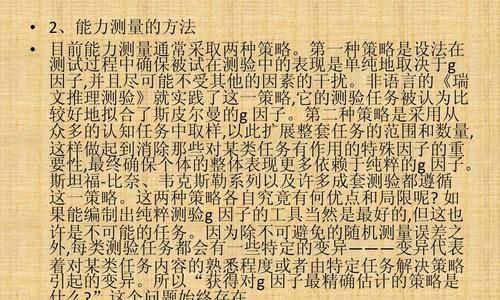 • 2、能力测量的方法
• 目前能力测量通常采取两种策略。第一种策略是设法在
测试过程中确保被试在测验中的表现是单纯地取决于g
因子,并且尽可能不受其他的因素的干扰。非语言的《瑞
文推理测验》就实践了这一策略,它的测验任务被认为比
较好地拟合了斯皮尔曼的g因子。第二种策略是采用从
众多的认知任务中取样,以此扩展整套任务的范围和数量,
这样做起到消除那些对某类任务有作用的特殊因子的重
要性,最终确保个体的整体表现更多依赖于纯粹的g因子。
斯坦福-比奈、韦克斯勒系列以及许多成套测验都遵循
这一策略。这两种策略各自究竟有何优点和局限呢?如
果能编制出纯粹测验g因子的工具当然是最好的,但这也
许是不可能的任务。因为除不可避免的随机测量误差之
外,每类测验任务都会有一些特定的变异———变异代表
着对某类任务内容的熟悉程度或者由特定任务解决策略
引起的变异。所以“获得对g因子最精确估计的策略是
什么?”这个问题始终存在